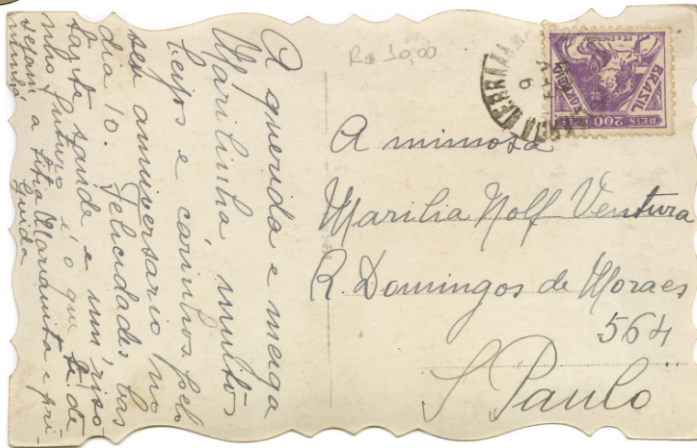 A querida e meiga
Marilinha muitos
beijos e carinhos pelo
seu anniversario no
dia 10. Felicidades bas
tante saude e um riso-
nho futuro é o que te de
sejam a titia Marianita e pri-
minha
Guida
Rs 10,00
BRASIL
REIS 200 REIS
A mimosa
Marilia Nolf Ventura
R. Domingos de Moraes
564
S Paulo